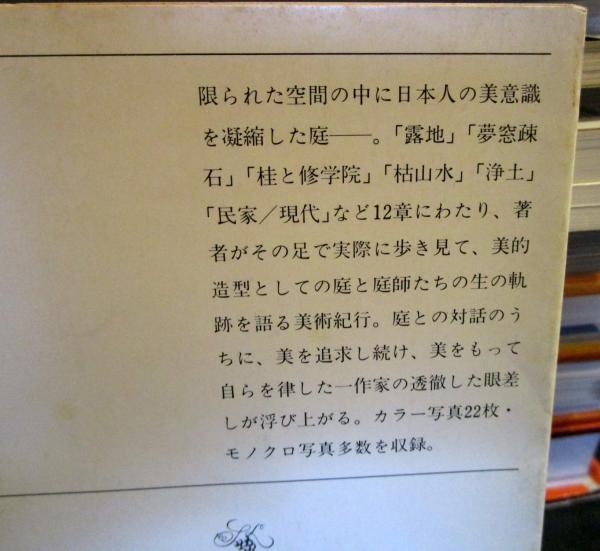 限られた空間の中に日本人の美意識
を凝縮した庭──。「露地」「夢窓疎
石」「桂と修学院」「枯山水」「浄土」
「民家／現代」など12章にわたり、著
者がその足で実際に歩き見て、美的
造型としての庭と庭師たちの生の軌
跡を語る美術紀行。庭との対話のう
ちに、美を追求し続け、美をもって
自らを律した一作家の透徹した眼差
しが浮び上がる。カラー写真22枚・
モノクロ写真多数を収録。